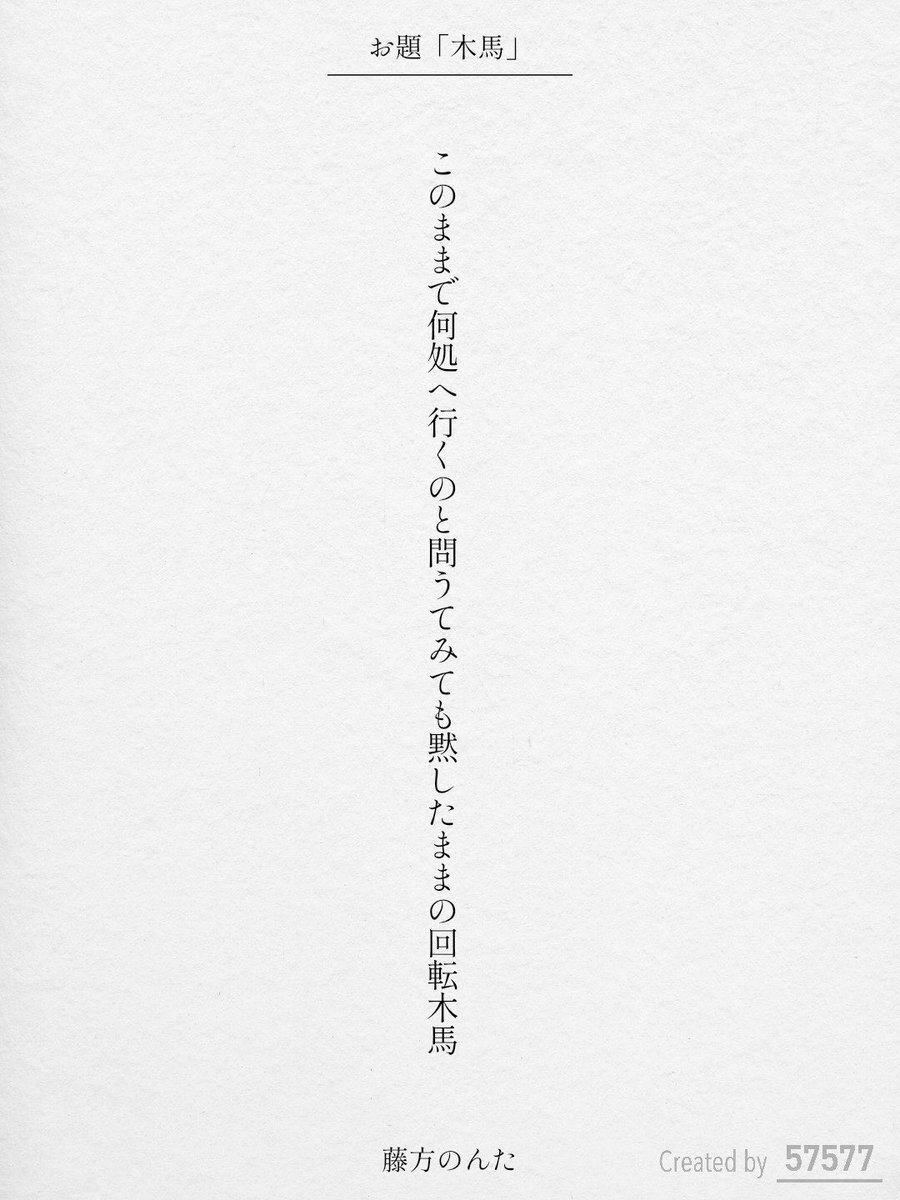 お題「木馬」
このままで何処へ行くのと問うてみても黙したままの回転木馬
藤方のんた
Created by 57577